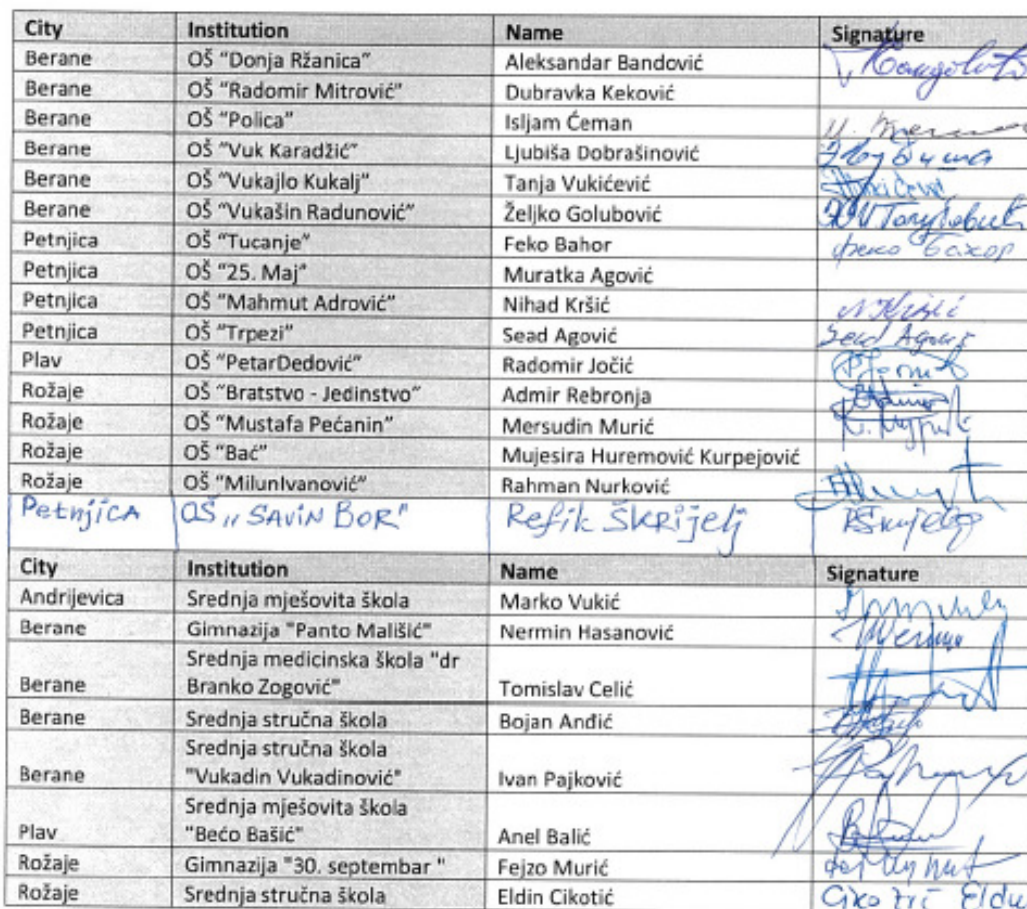 City Institution Name Signature
Berane OŠ "Donja Ržanica" Aleksandar Bandović
Berane OŠ "Radomir Mitrović" Dubravka Keković
Berane OŠ "Polica" Isljam Ćeman
Berane OŠ "Vuk Karadžić" Ljubiša Dobrašinović
Berane OŠ "Vukajlo Kukalj" Tanja Vukićević
Berane OŠ "Vukašin Radunović" Željko Golubović
Petnjica OŠ "Tucanje" Feko Bahor феко Бахор
Petnjica OŠ "25. Maj" Muratka Agović
Petnjica OŠ "Mahmut Adrović" Nihad Kršić
Petnjica OŠ "Trpezi" Sead Agović Sead Agović
Plav OŠ "PetarDedović" Radomir Jočić
Rožaje OŠ "Bratstvo - Jedinstvo" Admir Rebronja
Rožaje OŠ "Mustafa Pećanin" Mersudin Murić
Rožaje OŠ "Bać" Mujesira Huremović Kurpejović
Rožaje OŠ "MilunIvanović" Rahman Nurković
Petnjica OŠ „SAVIN BOR" Refik Škrijelj
City Institution Name Signature
Andrijevica Srednja mješovita škola Marko Vukić
Berane Gimnazija "Panto Mališić" Nermin Hasanović
Srednja medicinska škola "dr
Berane Branko Zogović" Tomislav Celić
Berane Srednja stručna škola Bojan Anđić
Srednja stručna škola
Berane "Vukadin Vukadinović" Ivan Pajković
Srednja mješovita škola
Plav "Bećo Bašić" Anel Balić
Rožaje Gimnazija "30. septembar " Fejzo Murić
Rožaje Srednja stručna škola Eldin Cikotić